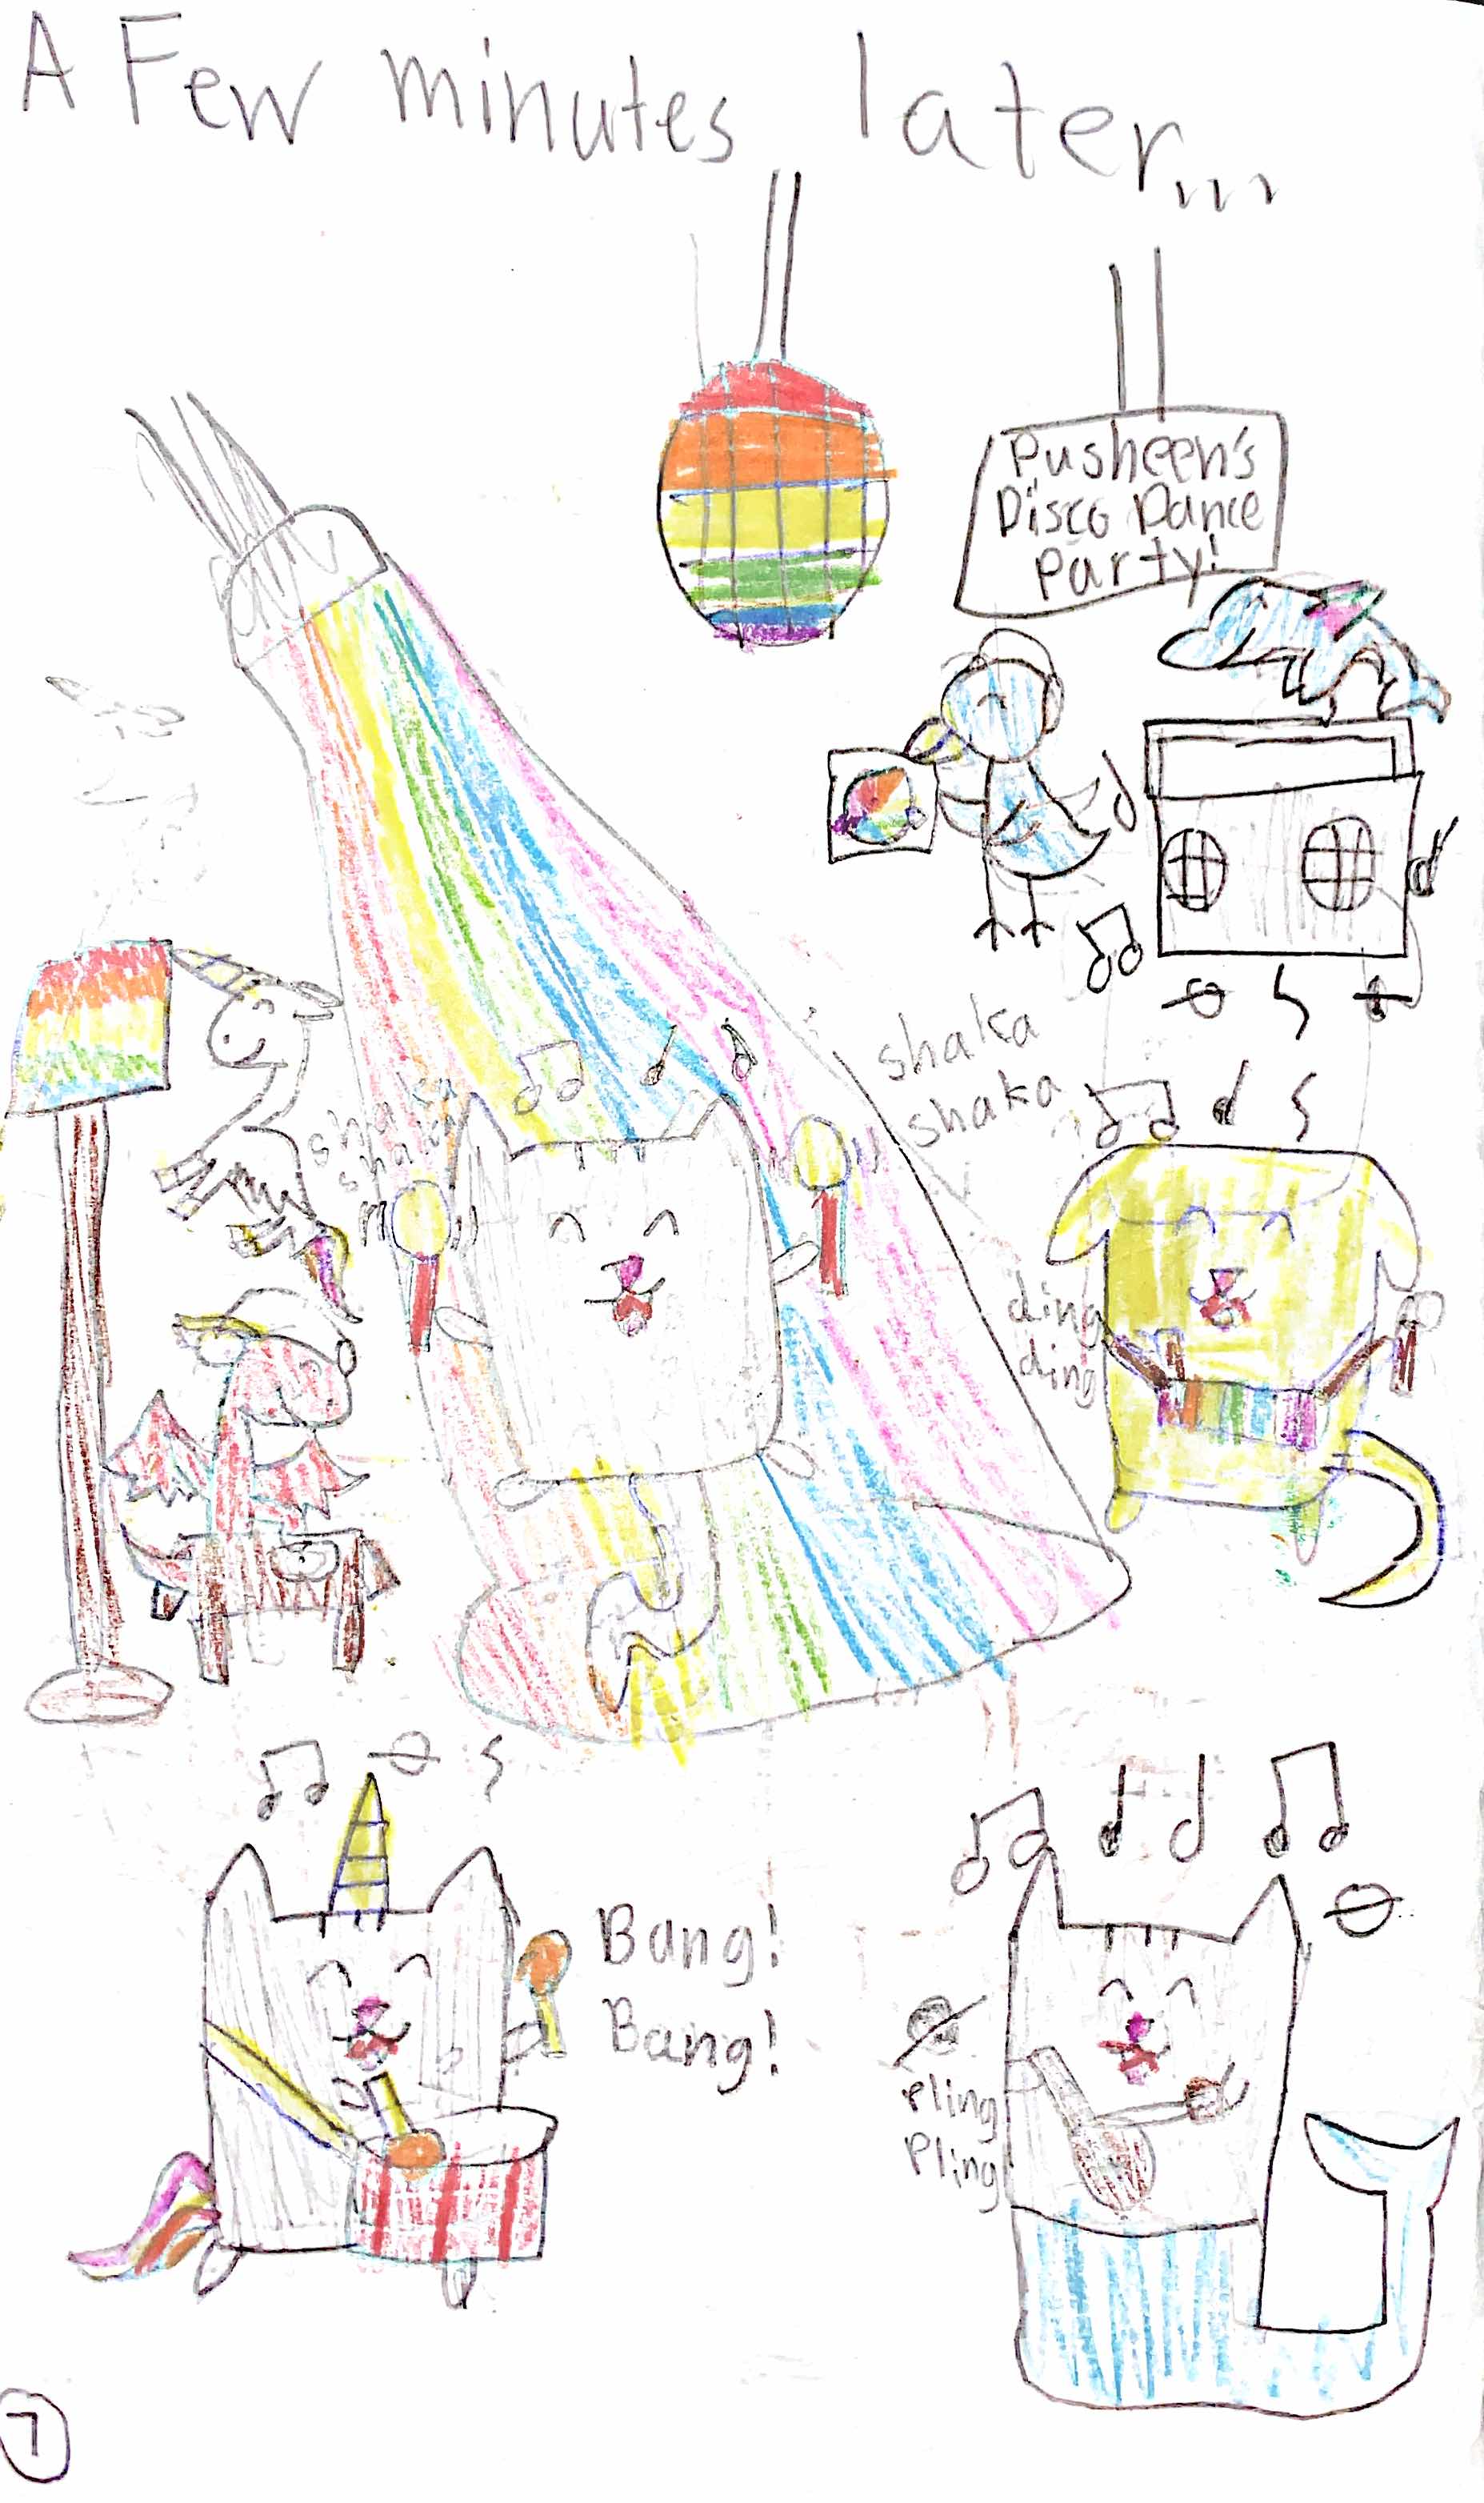 A Few minutes later...
Pusheen's
Disco Dance
Party!
shaka
shaka
shaka
shaka
ding
ding
Bang!
Bang!
Pling
Pling
7